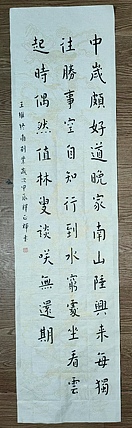 中歲頗好道晚家南山陲興來每獨
往勝事空自知行到水窮處坐看雲
起時偶然值林叟談咲無還期
王維終南別業歲次甲辰